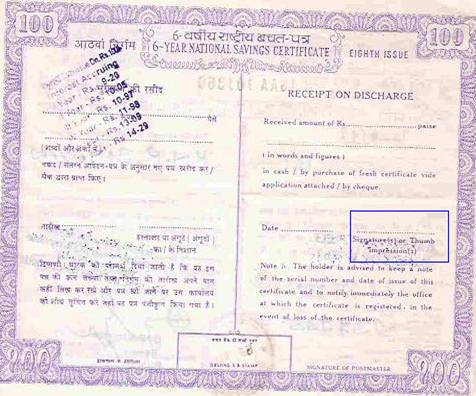 100
100
6-वर्षीय राष्ट्रीय बचत-पत्र
6-YEAR NATIONAL SAVINGS CERTIFICATE
आठवां निर्गम
EIGHTH ISSUE
Accruing
9-20
10-05
10-97
11-98
Rs. 13-09
Rs. 14-29
की रसीद
RECEIPT ON DISCHARGE
पैसे
Received amount of Rs. paise
(शब्दों और अंकों में)
( in words and figures )
नकद / संलग्न आवेदन-पत्र के अनुसार नए पत्र खरीद कर /
चैक द्वारा प्राप्त किए।
in cash / by purchase of fresh certificate vide
application attached / by cheque.
तारीख
हस्ताक्षर या अंगूठे (अंगूठों)
का / के निशान
Date
Signature(s) or Thumb
impression(s)
टिप्पणी: धारक को परामर्श दिया जाता है कि वह इस
पत्र की क्रम संख्या तथा निर्गम की तारीख अपने पास
कहीं लिख कर रखे और पत्र खो जाने पर उस कार्यालय
को शीघ्र सूचित करे जहां वह पत्र पंजीकृत किया गया है।
Note :- The holder is advised to keep a note
of the serial number and date of issue of this
certificate and to notify immediately the office
at which the certificate is registered, in the
event of loss of the certificate.
SIGNATURE OF POSTMASTER